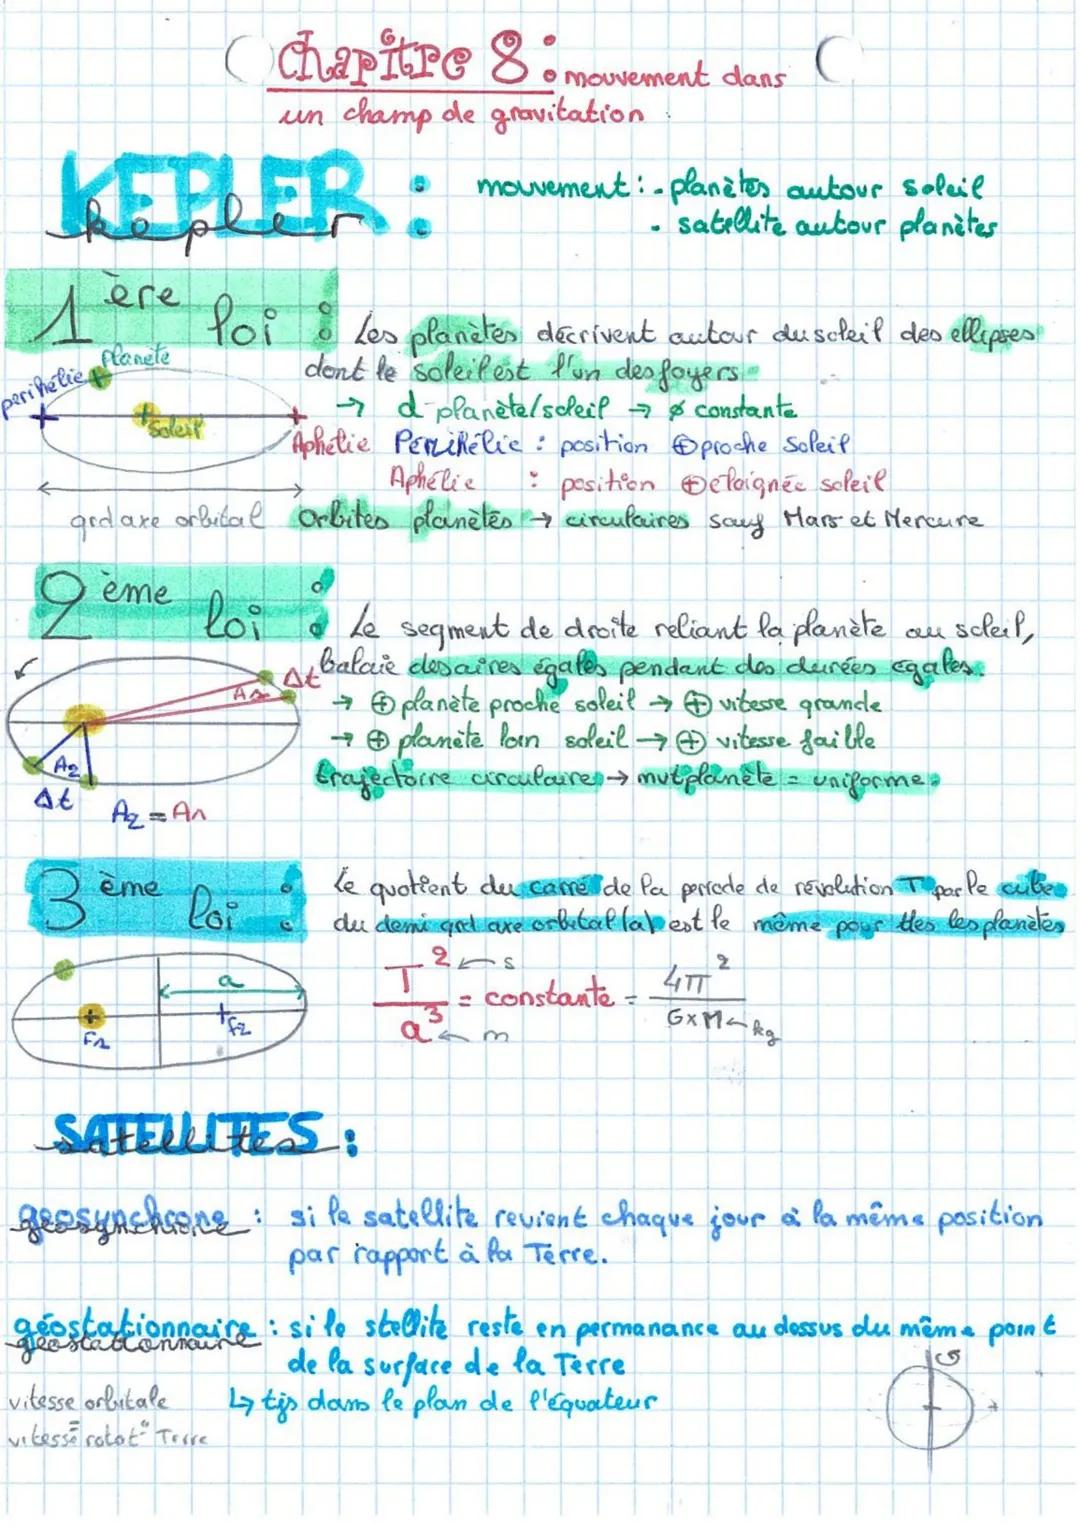 Chapitre 8 : mouvement dans
un champ de gravitation
KEPLER :
kepler
mouvement : - planètes autour soleil
- satellite autour planètes
1ère loi : Les planètes décrivent autour du soleil des ellipses
dont le soleil est l'un des foyers
→ d planète/soleil → ≠ constante
planete
perihélie
soleil
Aphelie
Périhélie : position ⊕ proche Soleil
Aphélie : position ⊕ eloignée soleil
grd axe orbital
Orbites planètes → circulaires sauf Mars et Mercure
2ème loi : Le segment de droite reliant la planète au soleil,
balaie des aires égales pendant des durées égales.
→ ⊕ planète proche soleil → ⊕ vitesse grande
→ ⊕ planète loin soleil → ⊕ vitesse faible
trajectoire circulaire → mvt planète = uniforme
Δt
A1
A2
Δt
A2 = A1
3ème loi : Le quotient du carré de la periode de révolution T par le cube
du demi grd axe orbital (a) est le même pour ttes les planètes
T² ← s
a³ ← m
= constante = 4π²
G x M ← kg
a
F1
F2
SATELLITES :
satellites
geosynchrone : si le satellite revient chaque jour à la même position
geosynchrone
par rapport à la Terre.
géostationnaire : si le stellite reste en permanance au dessus du même point
geostationnaire
de la surface de la Terre
↳ tjs dans le plan de l'équateur
vitesse orbitale
=
vitesse rotat° Terre